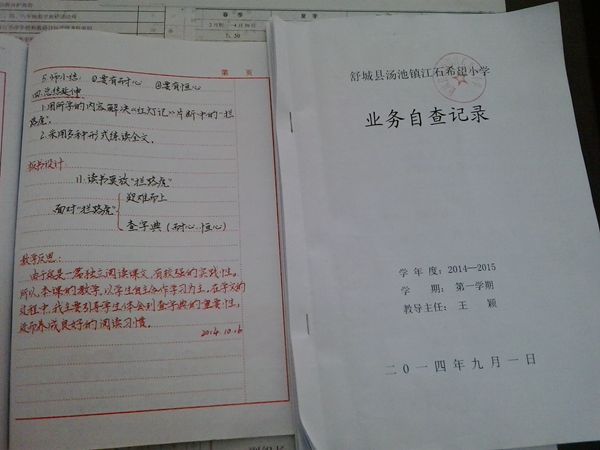 第 页
5.师小结:①要有耐心 ②要有恒心
四.总结延伸
1.用所学的内容解决《红灯记》片断中的"拦
路虎"。
2.采用多种形式练读全文。
板书设计:
11.读书莫放"拦路虎"
面对"拦路虎"
疑难而上
查字典(耐心、恒心)
教学反思:
由于这是一篇独立阅读课文,有较强的实践性。
所以,本课的教学,以学生自主合作学习为主。在学文的
过程中,我主要引导学生体会到查字典的重要性,
从而养成良好的阅读习惯。
2014.10.16
舒城县汤池镇江石希望小学
业务自查记录
学 年 度:2014—2015
学 期:第一学期
教导主任:王 颖
二〇一四年九月一日